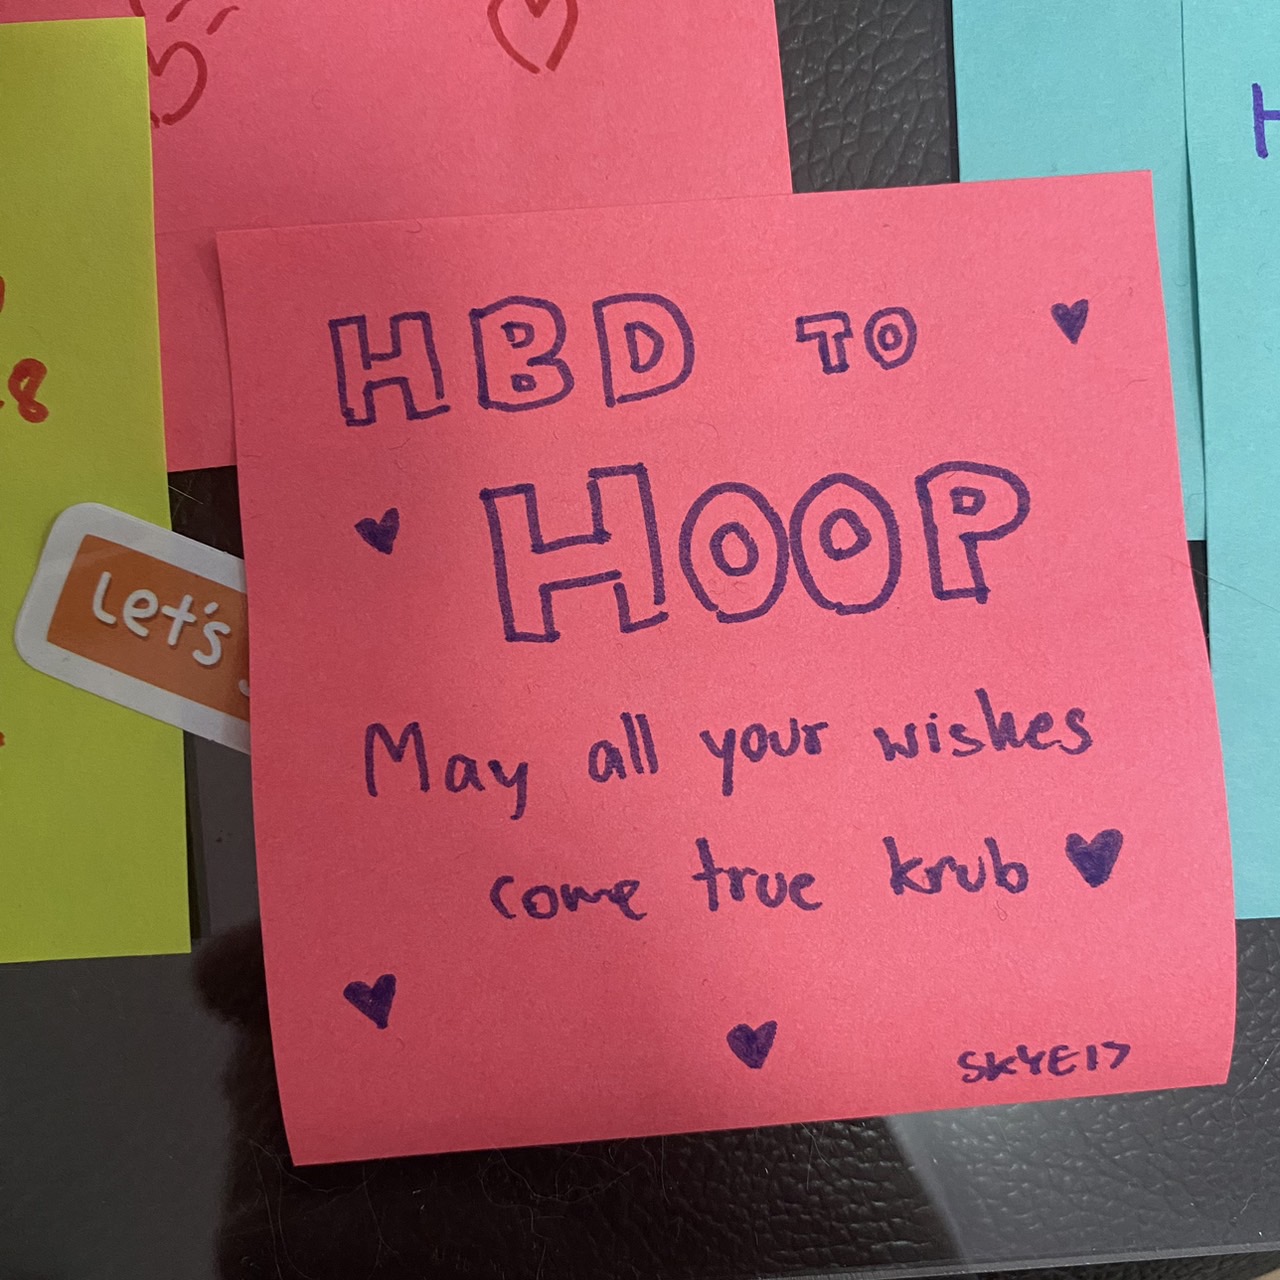 HBD TO
HOOP
May all your wishes
come true krub
SKYE17
Let's
8
H